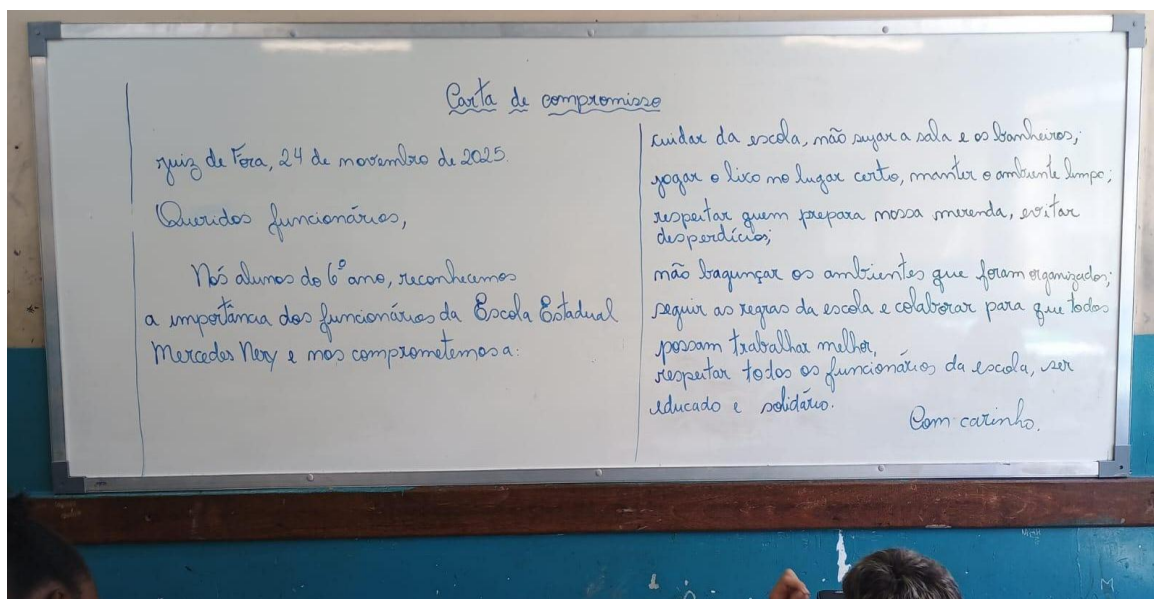 Carta de compromisso
Juiz de Fora, 24 de novembro de 2025.
Queridos funcionários,
Nós alunos do 6º ano, reconhecemos
a importância dos funcionários da Escola Estadual
Mercedes Nery e nos comprometemos a:
cuidar da escola, não sujar a sala e os banheiros;
jogar o lixo no lugar certo, manter o ambiente limpo;
respeitar quem prepara nossa merenda, evitar
desperdícios;
não bagunçar os ambientes que foram organizados;
seguir as regras da escola e colaborar para que todos
possam trabalhar melhor,
respeitar todos os funcionários da escola, ser
educado e solidário.
Com carinho.